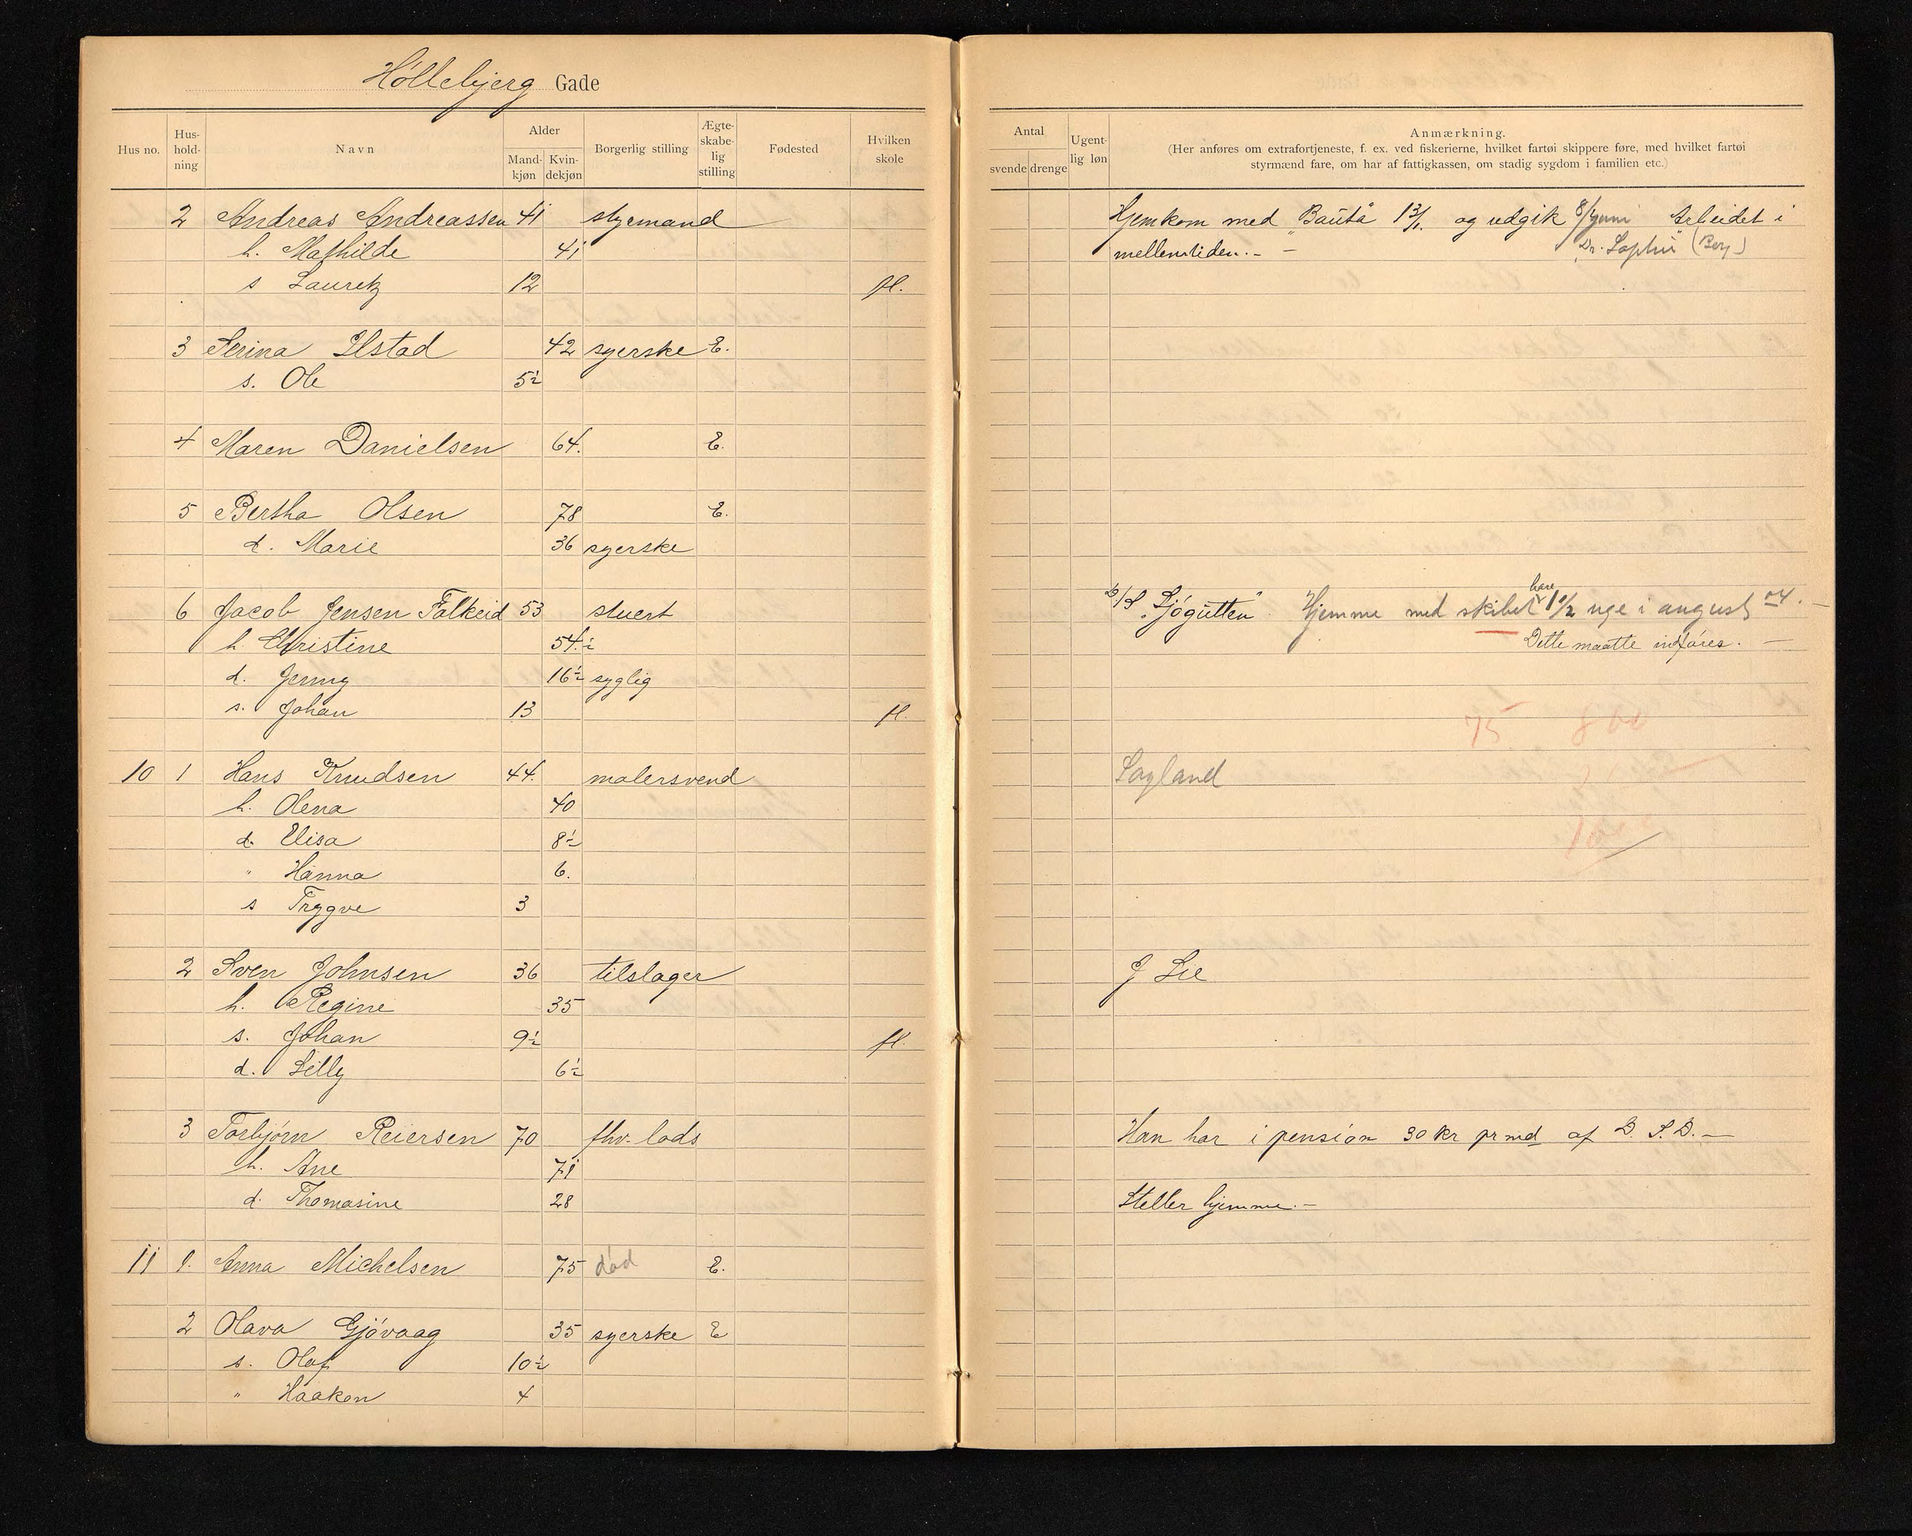 Høllebjerg Gade
Hus no. Hus-hold-ning Navn Alder Mand-kjøn Kvin-dekjøn Borgerlig stilling Ægte-skabe-lig stilling Fødested Hvilken skole
Antal svende drenge Ugent-lig løn Anmærkning.
(Her anføres om extrafortjeneste, f. ex. ved fiskerierne, hvilket fartøi skippere føre, med hvilket fartøi
styrmænd fare, om har af fattigkassen, om stadig sygdom i familien etc.)
2 Andreas Andreassen 41 styrmand Hjemkom med "Bauta 13/1. og udgik 8/juni Arbeidet i
h. Mathilde 41 mellemtiden.- Dr. Sophie"
s Lauretz 12 fl.
3 Serina Ilstad 42 syerske E.
s. Ole 5½
4 Maren Danielsen 64. E.
5 Bertha Olsen 78 E.
d. Marie 36 syerske
6 Jacob Jensen Falkeid 53 stuert "Sjøgutten" Hjemme med skibet bare 1½ uge i august
h. Christine 54.½ Dette maatte indføres. -
d. Jenny 16½ syglig
s. Johan 13 fl.
75 800
10 1 Hans Knudsen 44. malersvend Sagland
h. Olena 40
d. Elisa 8½
" Hanna 6.
s Trygve 3
2 Sven Johnsen 36 tilslager J Lie
h. Regine 35
s. Johan 9½ fl.
d. Lilly 6½
3 Torbjørn Reiersen 70 fhv. lods Han har i pension 30 kr pr md af D. S. D. -
h. Ane 71
d. Thomasine 28 Steller hjemme. -
11 1. Anna Michelsen 75 død E.
2 Olava Gjøvaag 35 syerske E
s. Olaf 10½
" Haakon 4